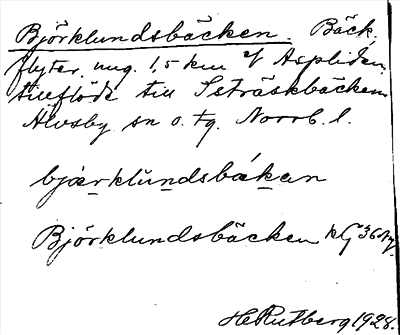 Björklundsbäcken. Bäck,
flyter ung. 1,5 km v/ Aspliden,
tillflöde till Seträskbäcken
Älvsby sn o. tg. Norrb. l.
bjærklùndsbákan
Björklundsbäcken kG
H Rutberg 1928.